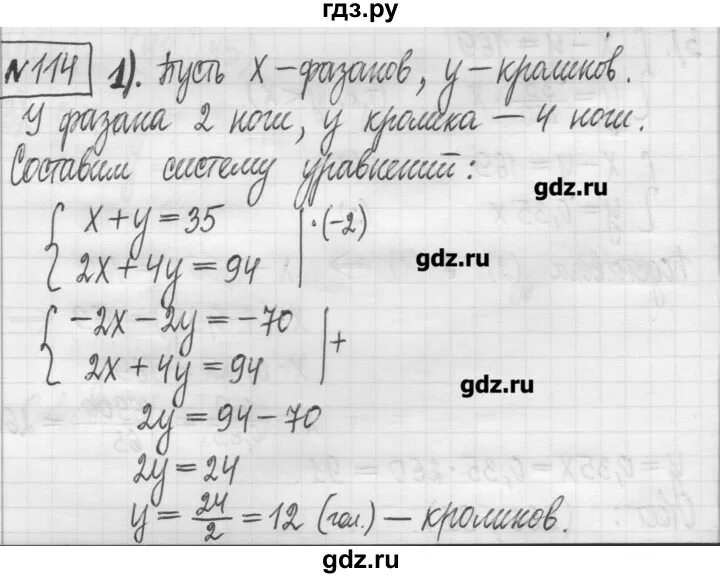 гдз.ру
№114 1). Пусть x – фазанов, y – кроликов.
У фазана 2 ноги, у кролика – 4 ноги.
Составим систему уравнений:
gdz.ru
{ x + y = 35 | ·(-2)
2x + 4y = 94
gdz.ru
{ -2x - 2y = -70 | +
2x + 4y = 94
gdz.ru
2y = 94 - 70
2y = 24
y = 24/2 = 12 (гол.) – кроликов.
gdz.ru